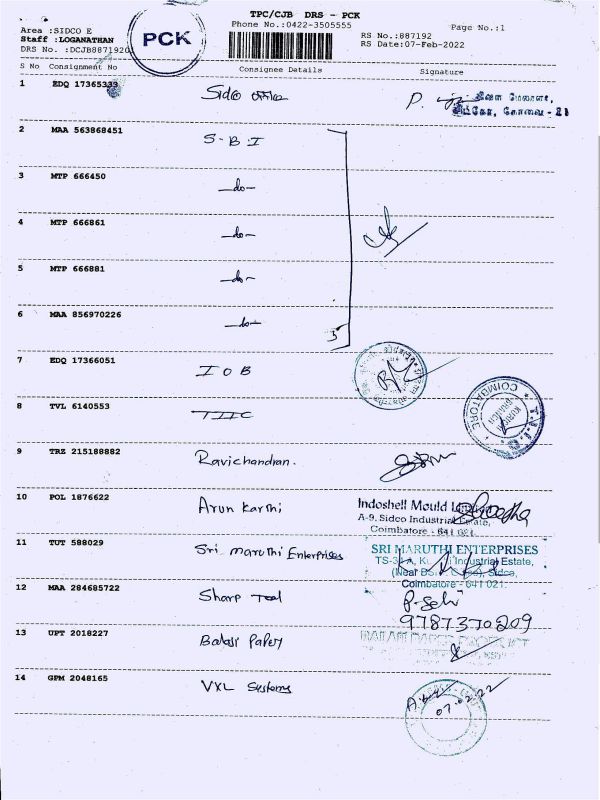 TPC/CJB DRS - PCK
Phone No.:0422-3505555
Page No.:1
Area :SIDCO E
Staff :LOGANATHAN
DRS No. :DCJB8871920
PCK
RS No.:887192
RS Date:07-Feb-2022
S No Consignment No Consignee Details Signature
1 EDQ 17365333 Sidco office P.
சிட்கோ, கோவை - 21
2 MAA 563868451 S-B-I
3 MTP 666450 -do-
4 MTP 666861 -do-
5 MTP 666881 -do-
6 MAA 856970226 -do- 5
7 EDQ 17366051 IOB
8 TVL 6140553 TIIC
COIMBATORE
BRANCH
9 TRZ 215188882 Ravichandran.
10 POL 1876622 Arun Karthi
Indoshell Mould
A-9, Sidco Industrial Estate,
Coimbatore - 641 021.
11 TUT 588029 Sri maruthi Enterprises
SRI MARUTHI ENTERPRISES
Industrial Estate,
(Near Sidco,
Coimbatore - 641 021.
12 MAA 284685722 Sharp Tool
9787370209
13 UPT 2018227 Balaji Paper
14 GPM 2048165 VXL Systems
07.02.22